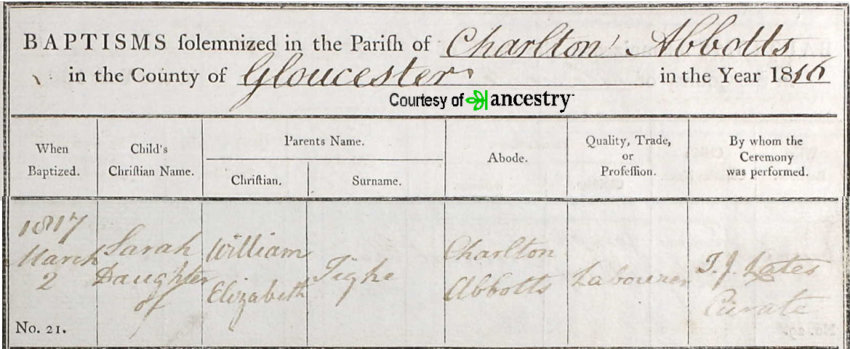 BAPTISMS ſolemnized in the Pariſh of Charlton Abbotts
in the County of Gloucester in the Year 1816
Courtesy of ancestry
When Baptized.
Child's Chriſtian Name.
Parents Name.
Chriſtian.
Surname.
Abode.
Quality, Trade, or Profeſſion.
By whom the Ceremony was performed.
1817
March
2
Sarah
Daughter
of
William
Elizabeth
Tighe
Charlton
Abbotts
Labourer
T. J.
Curate
No. 21.